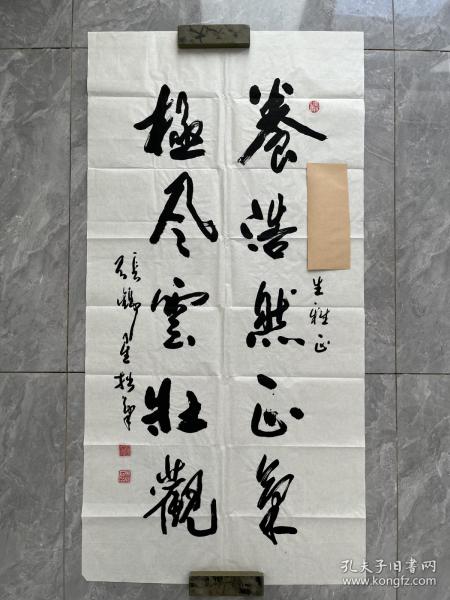 生雅正
養浩然正氣
極風雲壯觀
張鶴
拙筆
孔夫子旧书网
www.kongfz.com